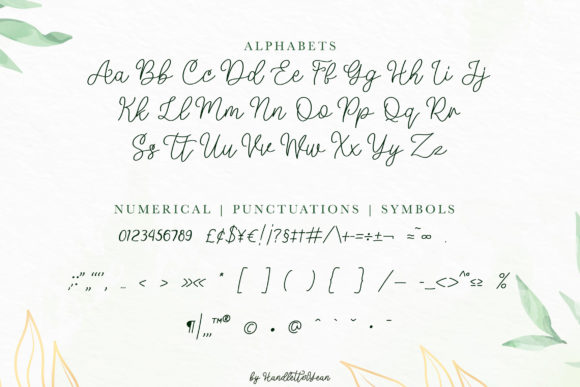 ALPHABETS
Aa Bb Cc Dd Ee Ff Gg Hh Ii Jj
Kk Ll Mm Nn Oo Pp Qq Rr
Ss Tt Uu Vv Ww Xx Yy Zz
NUMERICAL | PUNCTUATIONS | SYMBOLS
0123456789 £¢$¥€!¡?§‡†#/\+-=÷±¬ ≈~∞ .
‚;:",, "“”‚ .. < > »« * [ ] ( ) [ ] /— -_<>^°≤≥ %
¶|,,,™® © • @ ˆ ` ˘ · ¯
by HandletterYean